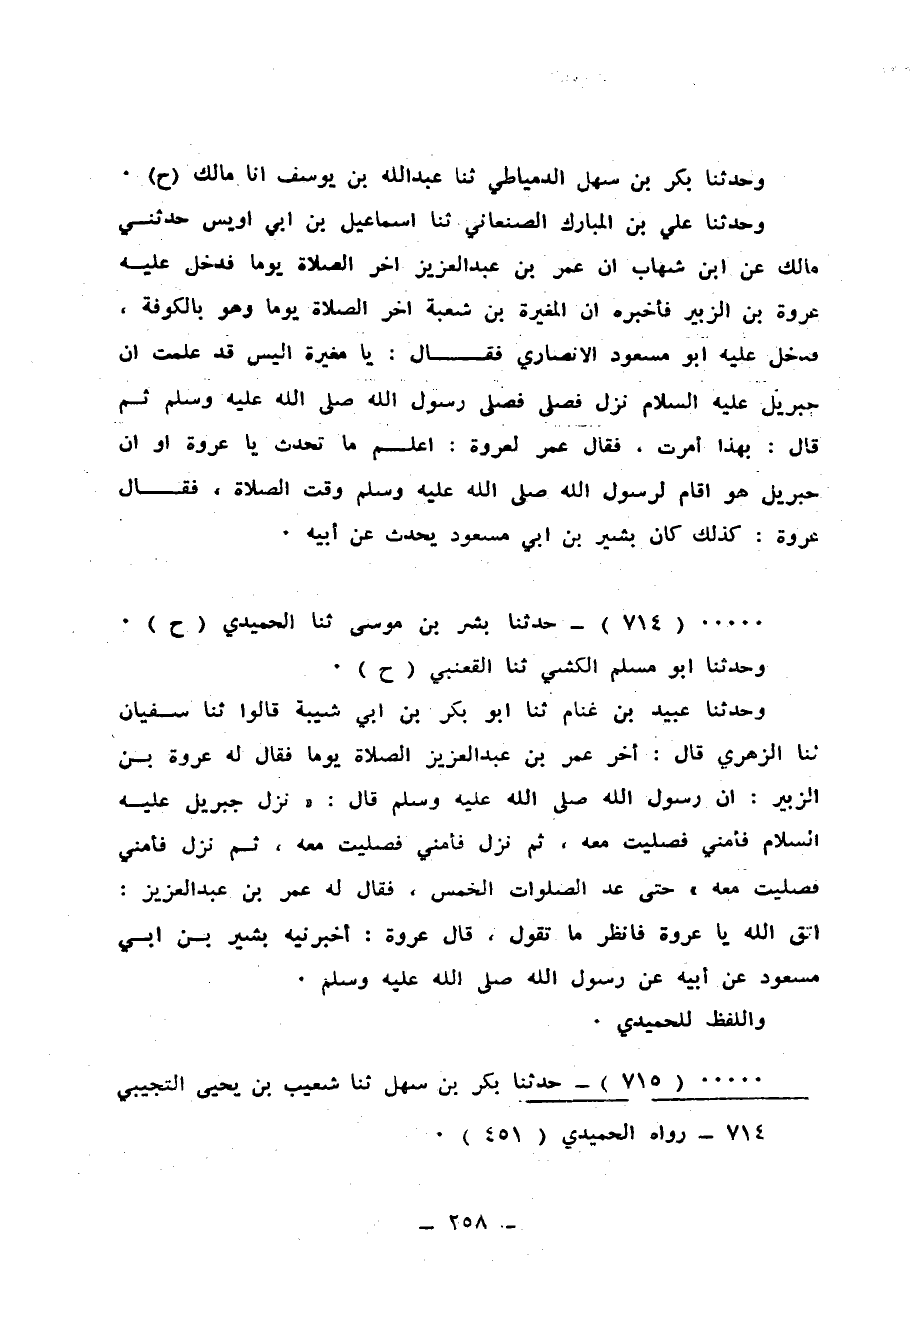 وحدثنا بكر بن سهل الدمياطي ثنا عبدالله بن يوسف انا مالك (ح) ·
وحدثنا علي بن المبارك الصنعاني ثنا اسماعيل بن ابي اويس حدثني
مالك عن ابن شهاب ان عمر بن عبدالعزيز اخر الصلاة يوما فدخل عليه
عروة بن الزبير فأخبره ان المغيرة بن شعبة اخر الصلاة يوما وهو بالكوفة ،
فدخل عليه ابو مسعود الانصاري فقال : يا مغيرة اليس قد علمت ان
جبريل عليه السلام نزل فصلى فصلى رسول الله صلى الله عليه وسلم ثم
قال : بهذا أمرت ، فقال عمر لعروة : اعلم ما تحدث يا عروة او ان
جبريل هو اقام لرسول الله صلى الله عليه وسلم وقت الصلاة ، فقال
عروة : كذلك كان بشير بن ابي مسعود يحدث عن أبيه ·
····· ( ٧١٤ ) ــ حدثنا بشر بن موسى ثنا الحميدي ( ح ) ·
وحدثنا ابو مسلم الكشي ثنا القعنبي ( ح ) ·
وحدثنا عبيد بن غنام ثنا ابو بكر بن ابي شيبة قالوا ثنا سفيان
ثنا الزهري قال : أخر عمر بن عبدالعزيز الصلاة يوما فقال له عروة بن
الزبير : ان رسول الله صلى الله عليه وسلم قال : « نزل جبريل عليه
السلام فأمني فصليت معه ، ثم نزل فأمني فصليت معه ، ثم نزل فأمني
فصليت معه » حتى عد الصلوات الخمس ، فقال له عمر بن عبدالعزيز :
اتق الله يا عروة فانظر ما تقول ، قال عروة : أخبرنيه بشير بن ابي
مسعود عن أبيه عن رسول الله صلى الله عليه وسلم ·
واللفظ للحميدي ·
····· ( ٧١٥ ) ــ حدثنا بكر بن سهل ثنا شعيب بن يحيى التجيبي
٧١٤ ــ رواه الحميدي ( ٤٥١ ) ·
ــ ٢٥٨ ــ